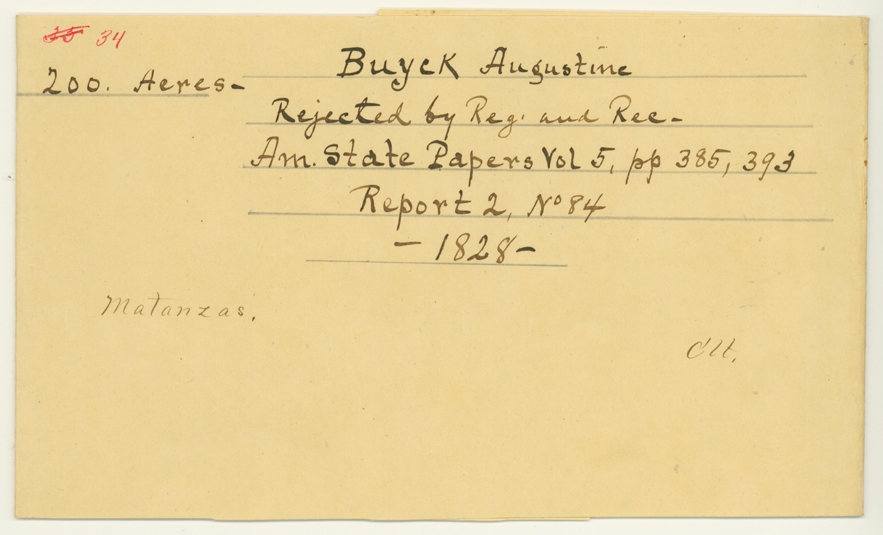 35 34
Buyck Augustine
200. Acres-
Rejected by Reg. and Rec-
Am. State Papers Vol 5, pp 385, 393
Report 2, No 84
- 1828 -
Matanzas.